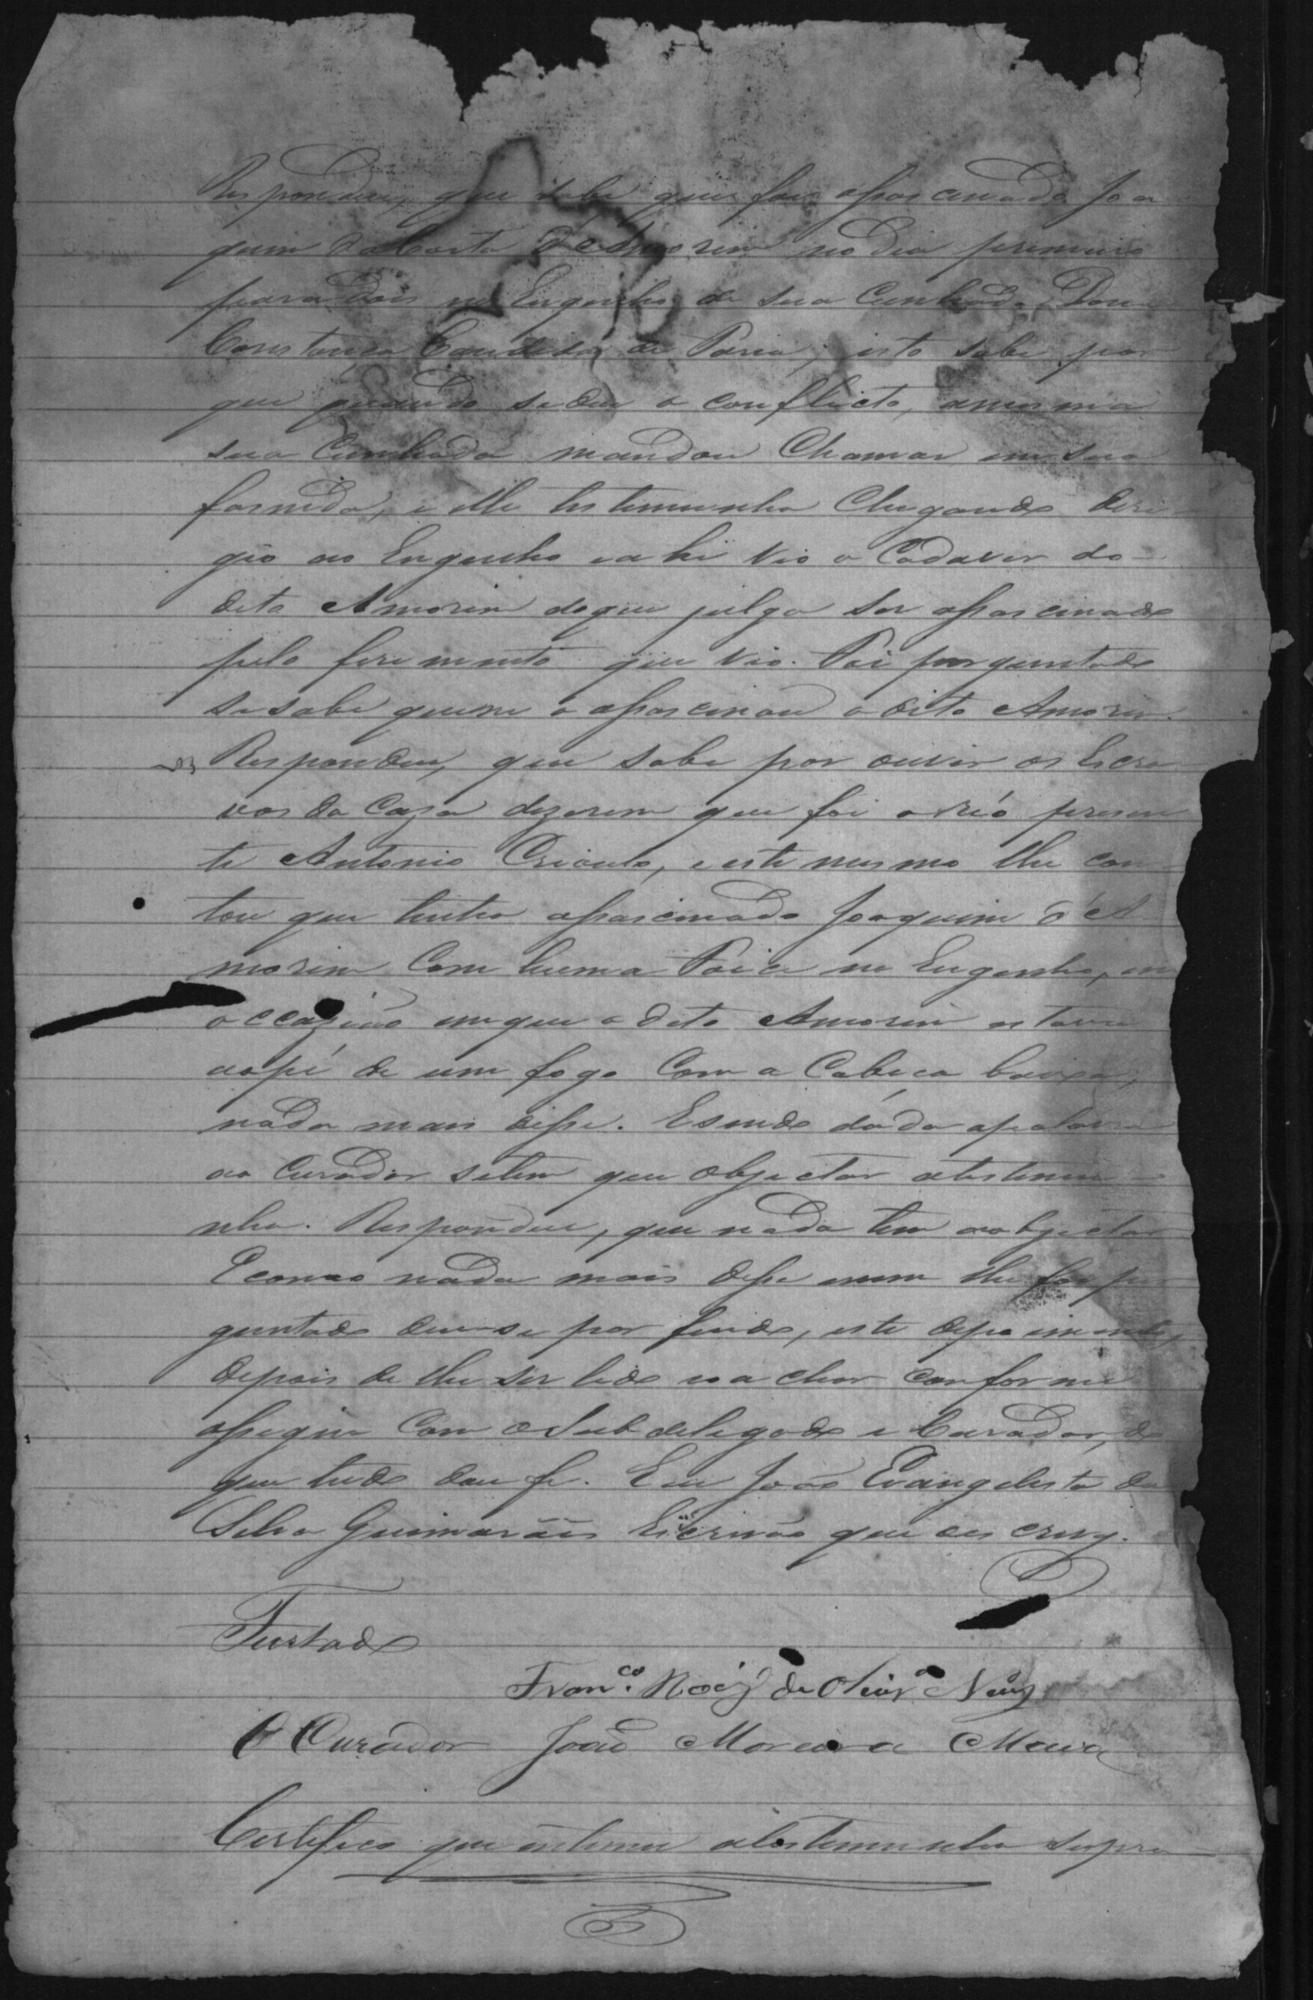 Respondeu, que sabe que foi assascinado Joa
quim da Costa d'Amorim no dia primeiro
para dois no Engenho de sua Cunhada Dona
Constança Candida de Faria, isto sabe por
que quando sedeu o conflicto, amesma
sua Cunhada mandou Chamar em sua
fasenda, e elle testimunha Chegando deri
gio ao Engenho eahi vio o Cadaver do
dito Amorim doque julga ser assascinado
pelo ferimento que vio. Foi perguntado
se sabe quem o assascinou o dito Amorim.
Respondeu, que sabe por ouvir os Escra
vos da Caza dizerem que foi o réo presen
te Antonio Crioulo, e este mesmo lhe con
tou que tinha assascinado Joaquim d'A
morim Com huma Foice no Engenho, em
occazião emque o dito Amorim estava
aopé de um fogo Com a Cabeca baixa,
nada mais disse. Esendo dáda apalavra
ao Curador setem que objectar atestemu
nha. Respondeu, que nada tem aobjectar
Ecomo nada mais disse nem lhe foi per
guntado deu-se por findo, este depoimento,
depois de lhe ser lido eoachar conforme
assigna Com oSubdelegado e Curador, do
que tudo dou fé. Eu João Evangelista da
Silva Guimarães Escrivão que oescrevy.
Furtado
Fran.co Roiz de Olivr.a Neves
O Curador João Moreira Maia
Certifico que intimei atestemunha supra